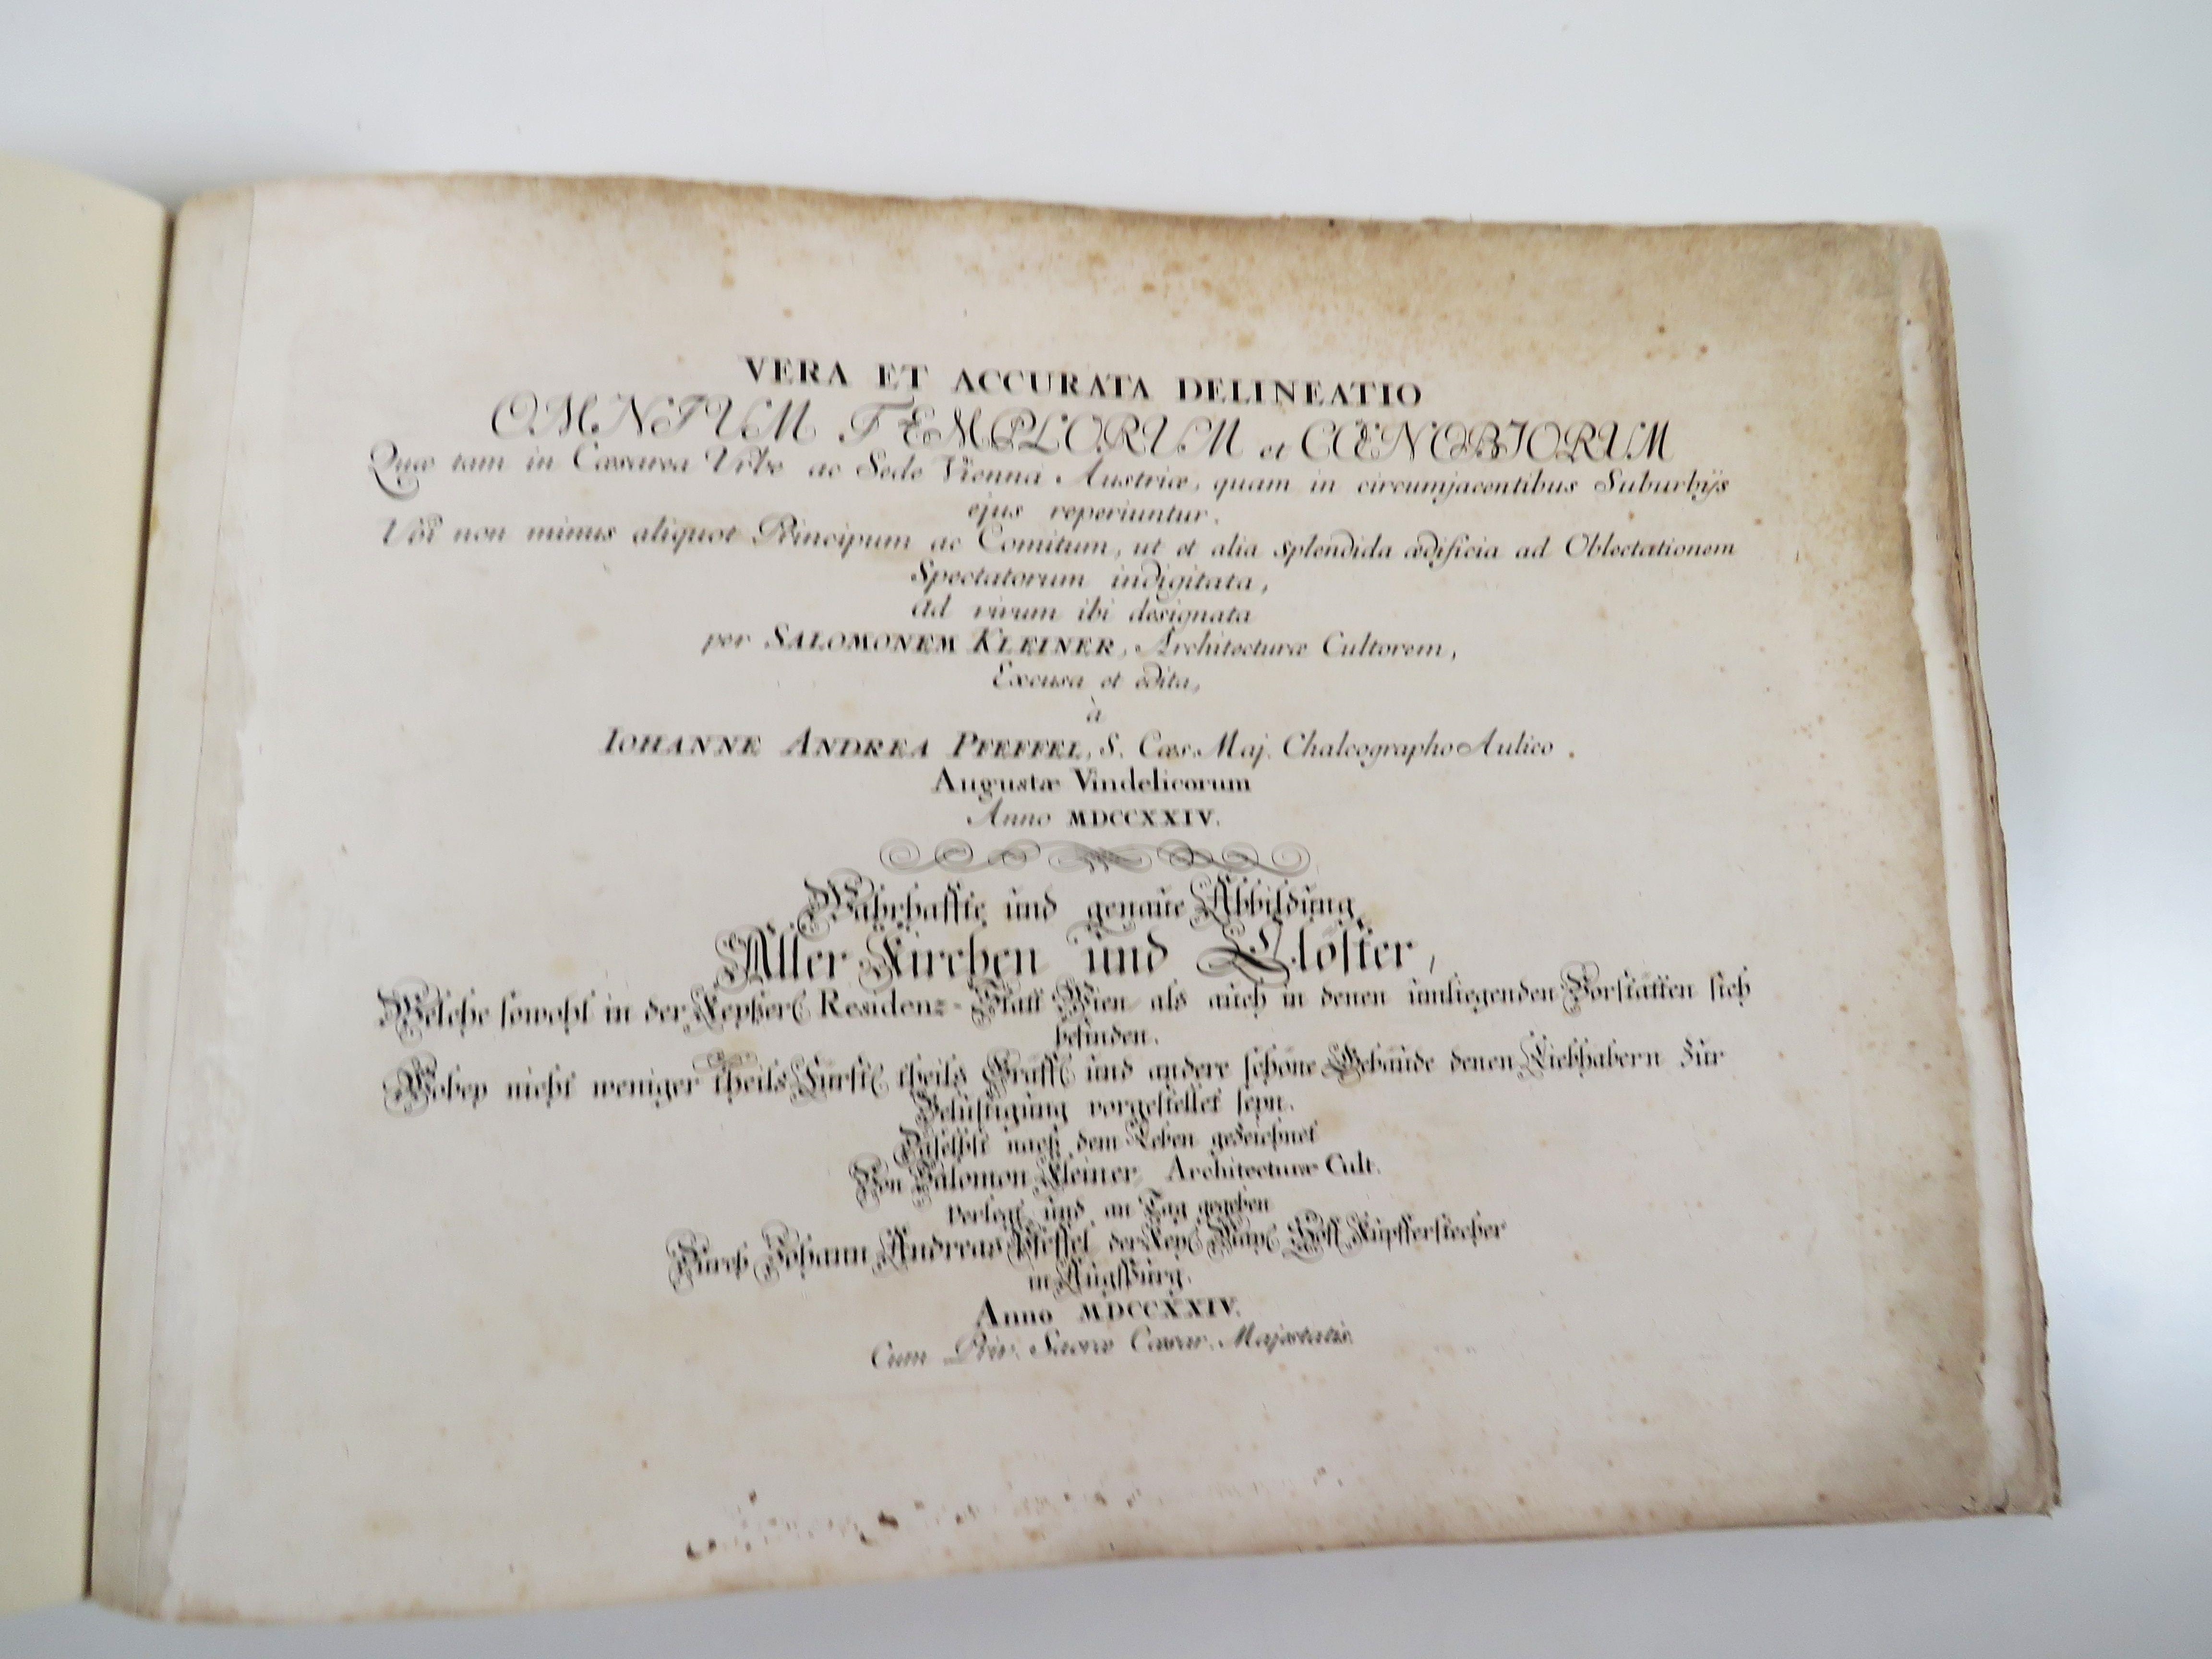 VERA ET ACCURATA DELINEATIO
OMNIUM TEMPLORUM et CŒNOBIORUM
Quæ tam in Cæsarea Urbe ac Sede Vienna Austriæ, quam in circumjacentibus Suburbijs
ejus reperiuntur.
Ubi non minus aliquot Principum ac Comitum, ut et alia splendida ædificia ad Oblectationem
Spectatorum indigitata,
ad vivum ibi designata
per SALOMONEM KLEINER, Architecturæ Cultorem,
Excusa et edita,
à
IOHANNE ANDREA PFEFFEL, S. Cæs. Maj. Chalcographo Aulico.
Augustæ Vindelicorum
Anno MDCCXXIV.
Wahrhaffte und genaue Abbildung
Aller Kirchen und Clöster,
Welche sowohl in der Keyßerl Residenz-Statt Wien als auch in denen umliegenden Vorstätten sich
befinden.
Wobey nicht weniger theils Fürstl theils Gräffl und andere schöne Gebäude denen Liebhabern zur
Belustigung vorgestellet seyn.
Daselbst nach dem Leben gezeichnet
Von Salomon Kleiner, Architecturæ Cult.
verlegt und an Tag gegeben
Durch Johann Andreas Pfeffel der Keyl Mayl Hoff Kupfferstecher
in Augspurg.
Anno MDCCXXIV.
Cum Priv. Sacræ Cæsar. Majestatis.